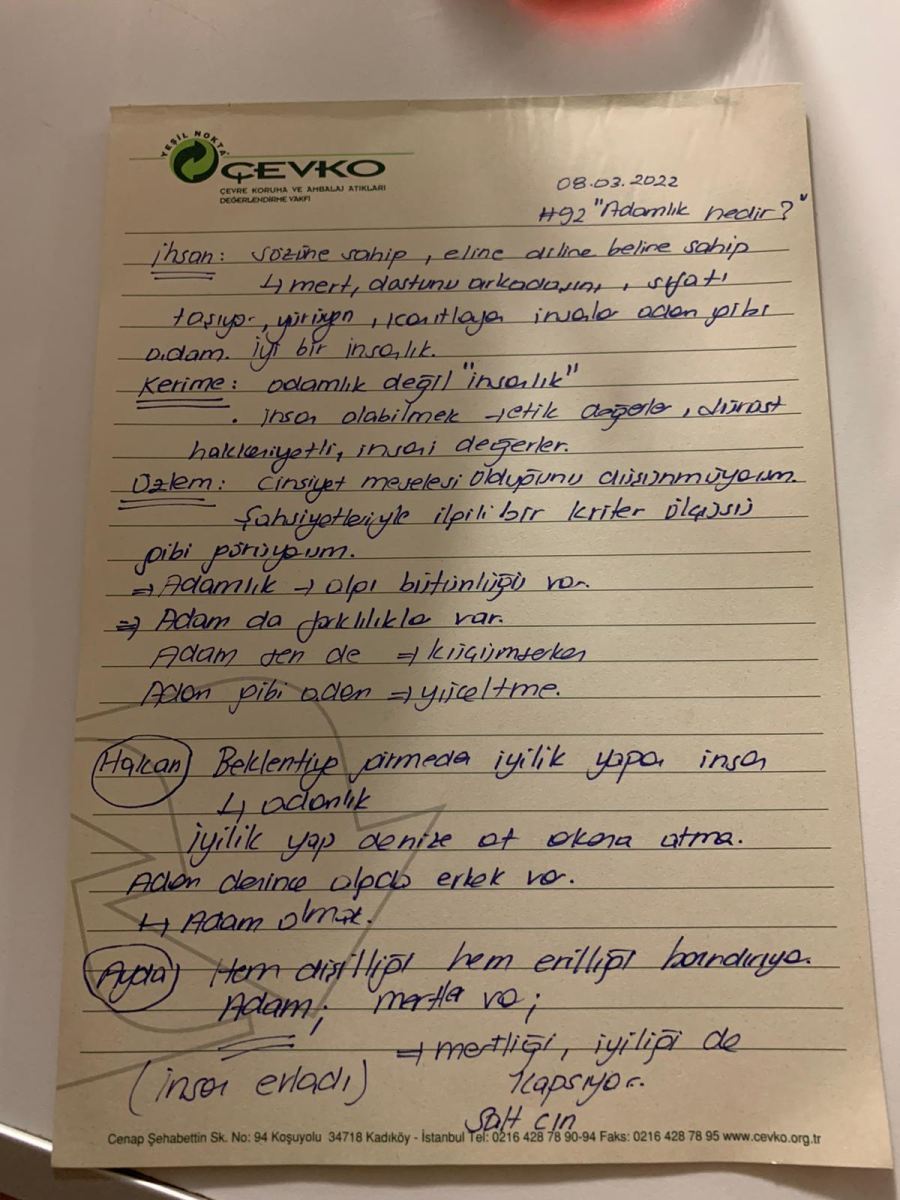 YEŞİL NOKTA
ÇEVKO
ÇEVRE KORUMA VE AMBALAJ ATIKLARI
DEĞERLENDİRME VAKFI
08.03.2022
#92 "Adamlık nedir?"
İhsan: sözüne sahip, eline diline beline sahip
↳ mert, dostunu arkadaşını, sıfatı
taşıyor, yürüyen, kanıtlayan insanlar adam gibi
adam. İyi bir insanlık.
Kerime: adamlık değil "insanlık"
. insan olabilmek → etik değerler, dürüst
hakkaniyetli, insani değerler.
Özlem: Cinsiyet meselesi olduğunu düşünmüyorum.
Şahsiyetleriyle ilgili bir kriter ölçüsü
gibi görüyorum.
⇒ Adamlık → algı bütünlüğü var.
⇒ Adam da farklılıklar var.
Adam sen de ⇒ küçümserken
Adam gibi adam ⇒ yüceltme.
Hakan Beklentiye girmeden iyilik yapan insan
↳ adamlık
İyilik yap denize at akana atma.
Adam derince algıda erkek var.
↳ Adam olmak.
Ayda Hem dişilliği hem erilliği barındırıyor.
Adam; mertler var;
⇒ mertliği, iyiliği de
kapsıyor.
(insan evladı)
Salt cin
Cenap Şehabettin Sk. No: 94 Koşuyolu 34718 Kadıköy - İstanbul Tel: 0216 428 78 90-94 Faks: 0216 428 78 95 www.cevko.org.tr